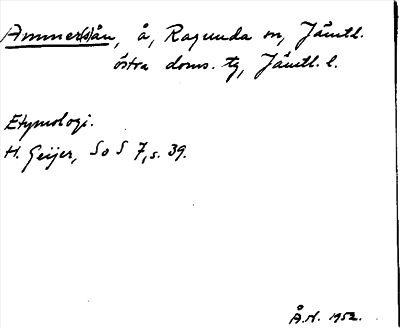 Ammer(s)ån, å, Ragunda sn, Jämtl.
östra doms. tg, Jämtl. l.
Etymologi.
H. Geijer, SoS 7, s. 39.
Å.N. 1952.